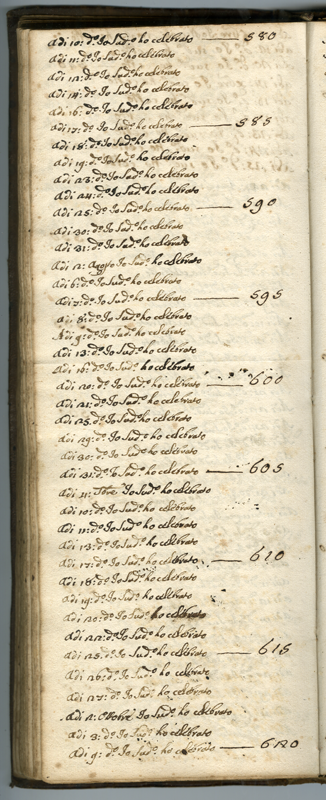 Adi 10: d.º Io Sud.º ho celebrato — 580
Adi 11: d.º Io Sud.º ho celebrato
Adi 12: d.º Io Sud.º ho celebrato
Adi 14: d.º Io Sud.º ho celebrato
Adi 16: d.º Io Sud.º ho celebrato
Adi 17: d.º Io Sud.º ho celebrato — 585
Adi 18: d.º Io Sud.º ho celebrato
Adi 19: d.º Io Sud.º ho celebrato
Adi 23: d.º Io Sud.º ho celebrato
Adi 24: d.º Io Sud.º ho celebrato
Adi 25: d.º Io Sud.º ho celebrato — 590
Adi 30: d.º Io Sud.º ho celebrato
Adi 31: d.º Io Sud.º ho celebrato
Adi 2: Agosto Io Sud.º ho celebrato
Adi 6: d.º Io Sud.º ho celebrato
Adi 7: d.º Io Sud.º ho celebrato — 595
Adi 8: d.º Io Sud.º ho celebrato
Adi 9: d.º Io Sud.º ho celebrato
Adi 13: d.º Io Sud.º ho celebrato
Adi 16: d.º Io Sud.º ho celebrato
Adi 20: d.º Io Sud.º ho celebrato — 600
Adi 21: d.º Io Sud.º ho celebrato
Adi 25: d.º Io Sud.º ho celebrato
Adi 29: d.º Io Sud.º ho celebrato
Adi 30: d.º Io Sud.º ho celebrato
Adi 31: d.º Io Sud.º ho celebrato — 605
Adi Io Sud.º ho celebrato
Adi 10: d.º Io Sud.º ho celebrato
Adi 11: d.º Io Sud.º ho celebrato
Adi 13: d.º Io Sud.º ho celebrato
Adi 17: d.º Io Sud.º ho celebrato — 610
Adi 18: d.º Io Sud.º ho celebrato
Adi 19: d.º Io Sud.º ho celebrato
Adi 20: d.º Io Sud.º ho celebrato
Adi 22: d.º Io Sud.º ho celebrato
Adi 25: d.º Io Sud.º ho celebrato — 615
Adi 26: d.º Io Sud.º ho celebrato
Adi 27: d.º Io Sud.º ho celebrato
Adi 2: Ottobre Io Sud.º ho celebrato
Adi 3: d.º Io Sud.º ho celebrato
Adi 9: d.º Io Sud.º ho celebrato — 620